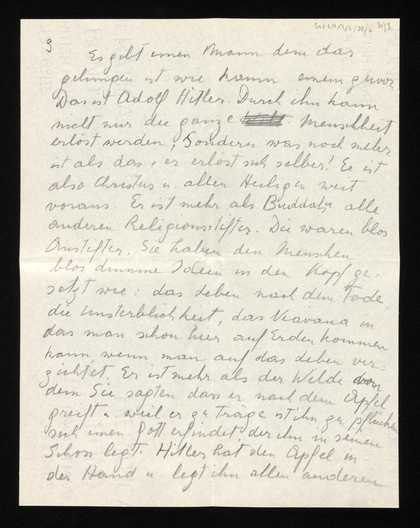 9
Es gibt einen Mann dem das
gelungen ist wie kaum einem zuvor
Das ist Adolf Hitler. Durch ihn kann
nicht nur die ganze Menschheit
erlöst werden, Sondern was noch mehr
ist als das, er erlöst sich selber! Er ist
also Christus u. allen Heiligen weit
voraus. Er ist mehr als Buddah u alle
anderen Religionsstifter. Die waren blos
Anstifter. Sie haben den Menschen
blos dumme Ideeen in den Kopf ge-
setzt wie: das Leben nach dem Tode
die Unsterblichkeit, das Nirvana in
das man schon hier auf Erden kommen
kann wenn man auf das Leben ver-
zichtet. Er ist mehr als der Wilde von
dem Sie sagten dass er nach dem Apfel
greift u weil er zu träge ist ihn zu pflücken
sich einen Gott erfindet der ihn in seinen
Schoss legt. Hitler hat den Apfel in
der Hand u. legt ihn allen anderen